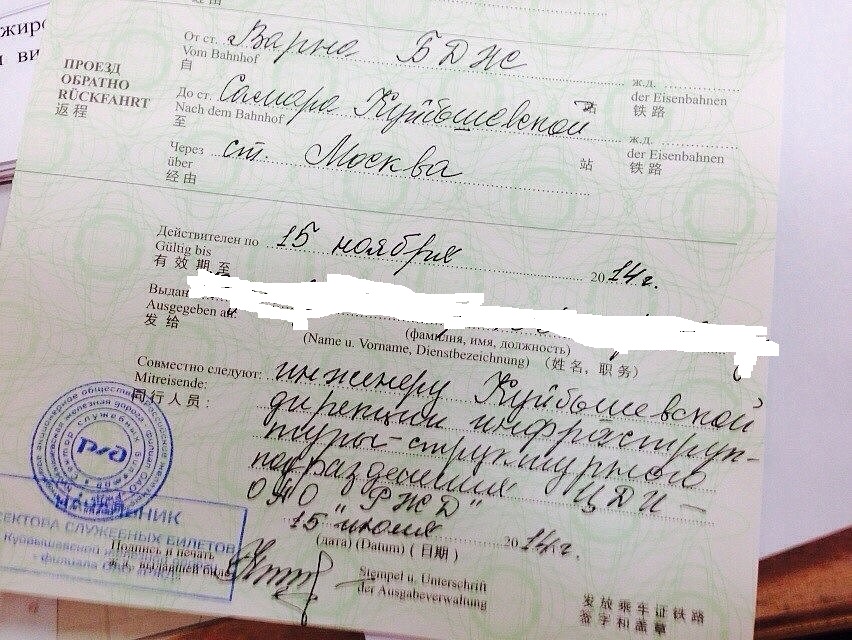 От ст. Варна БДЖ ж.д.
Vom Bahnhof der Eisenbahnen
自 站 铁路
ПРОЕЗД
ОБРАТНО
RÜCKFAHRT
返程
До ст. Самара Куйбышевской ж.д.
Nach dem Bahnhof der Eisenbahnen
至 站 铁路
Через ст. Москва
über
经由
Действителен по 15 ноября 2014г.
Gültig bis
有效期至
Выдан
Ausgegeben an:
发给
(фамилия, имя, должность)
(Name u. Vorname, Dienstbezeichnung) (姓名,职务)
Совместно следуют: инженеру Куйбышевской
Mitreisende: дирекции инфраструк-
同行人员: туры-структурного
подразделения ЦДИ-
ОАО "РЖД"
15 "июля 2014г.
(дата) (Datum) (日期)
НАЧАЛЬНИК
СЕКТОРА СЛУЖЕБНЫХ БИЛЕТОВ
Куйбышевской
филиала
Подпись и печать
ж.д. выдавшей билет
Stempel u. Unterschrift
der Ausgabeverwaltung
发放乘车证铁路
签字和盖章